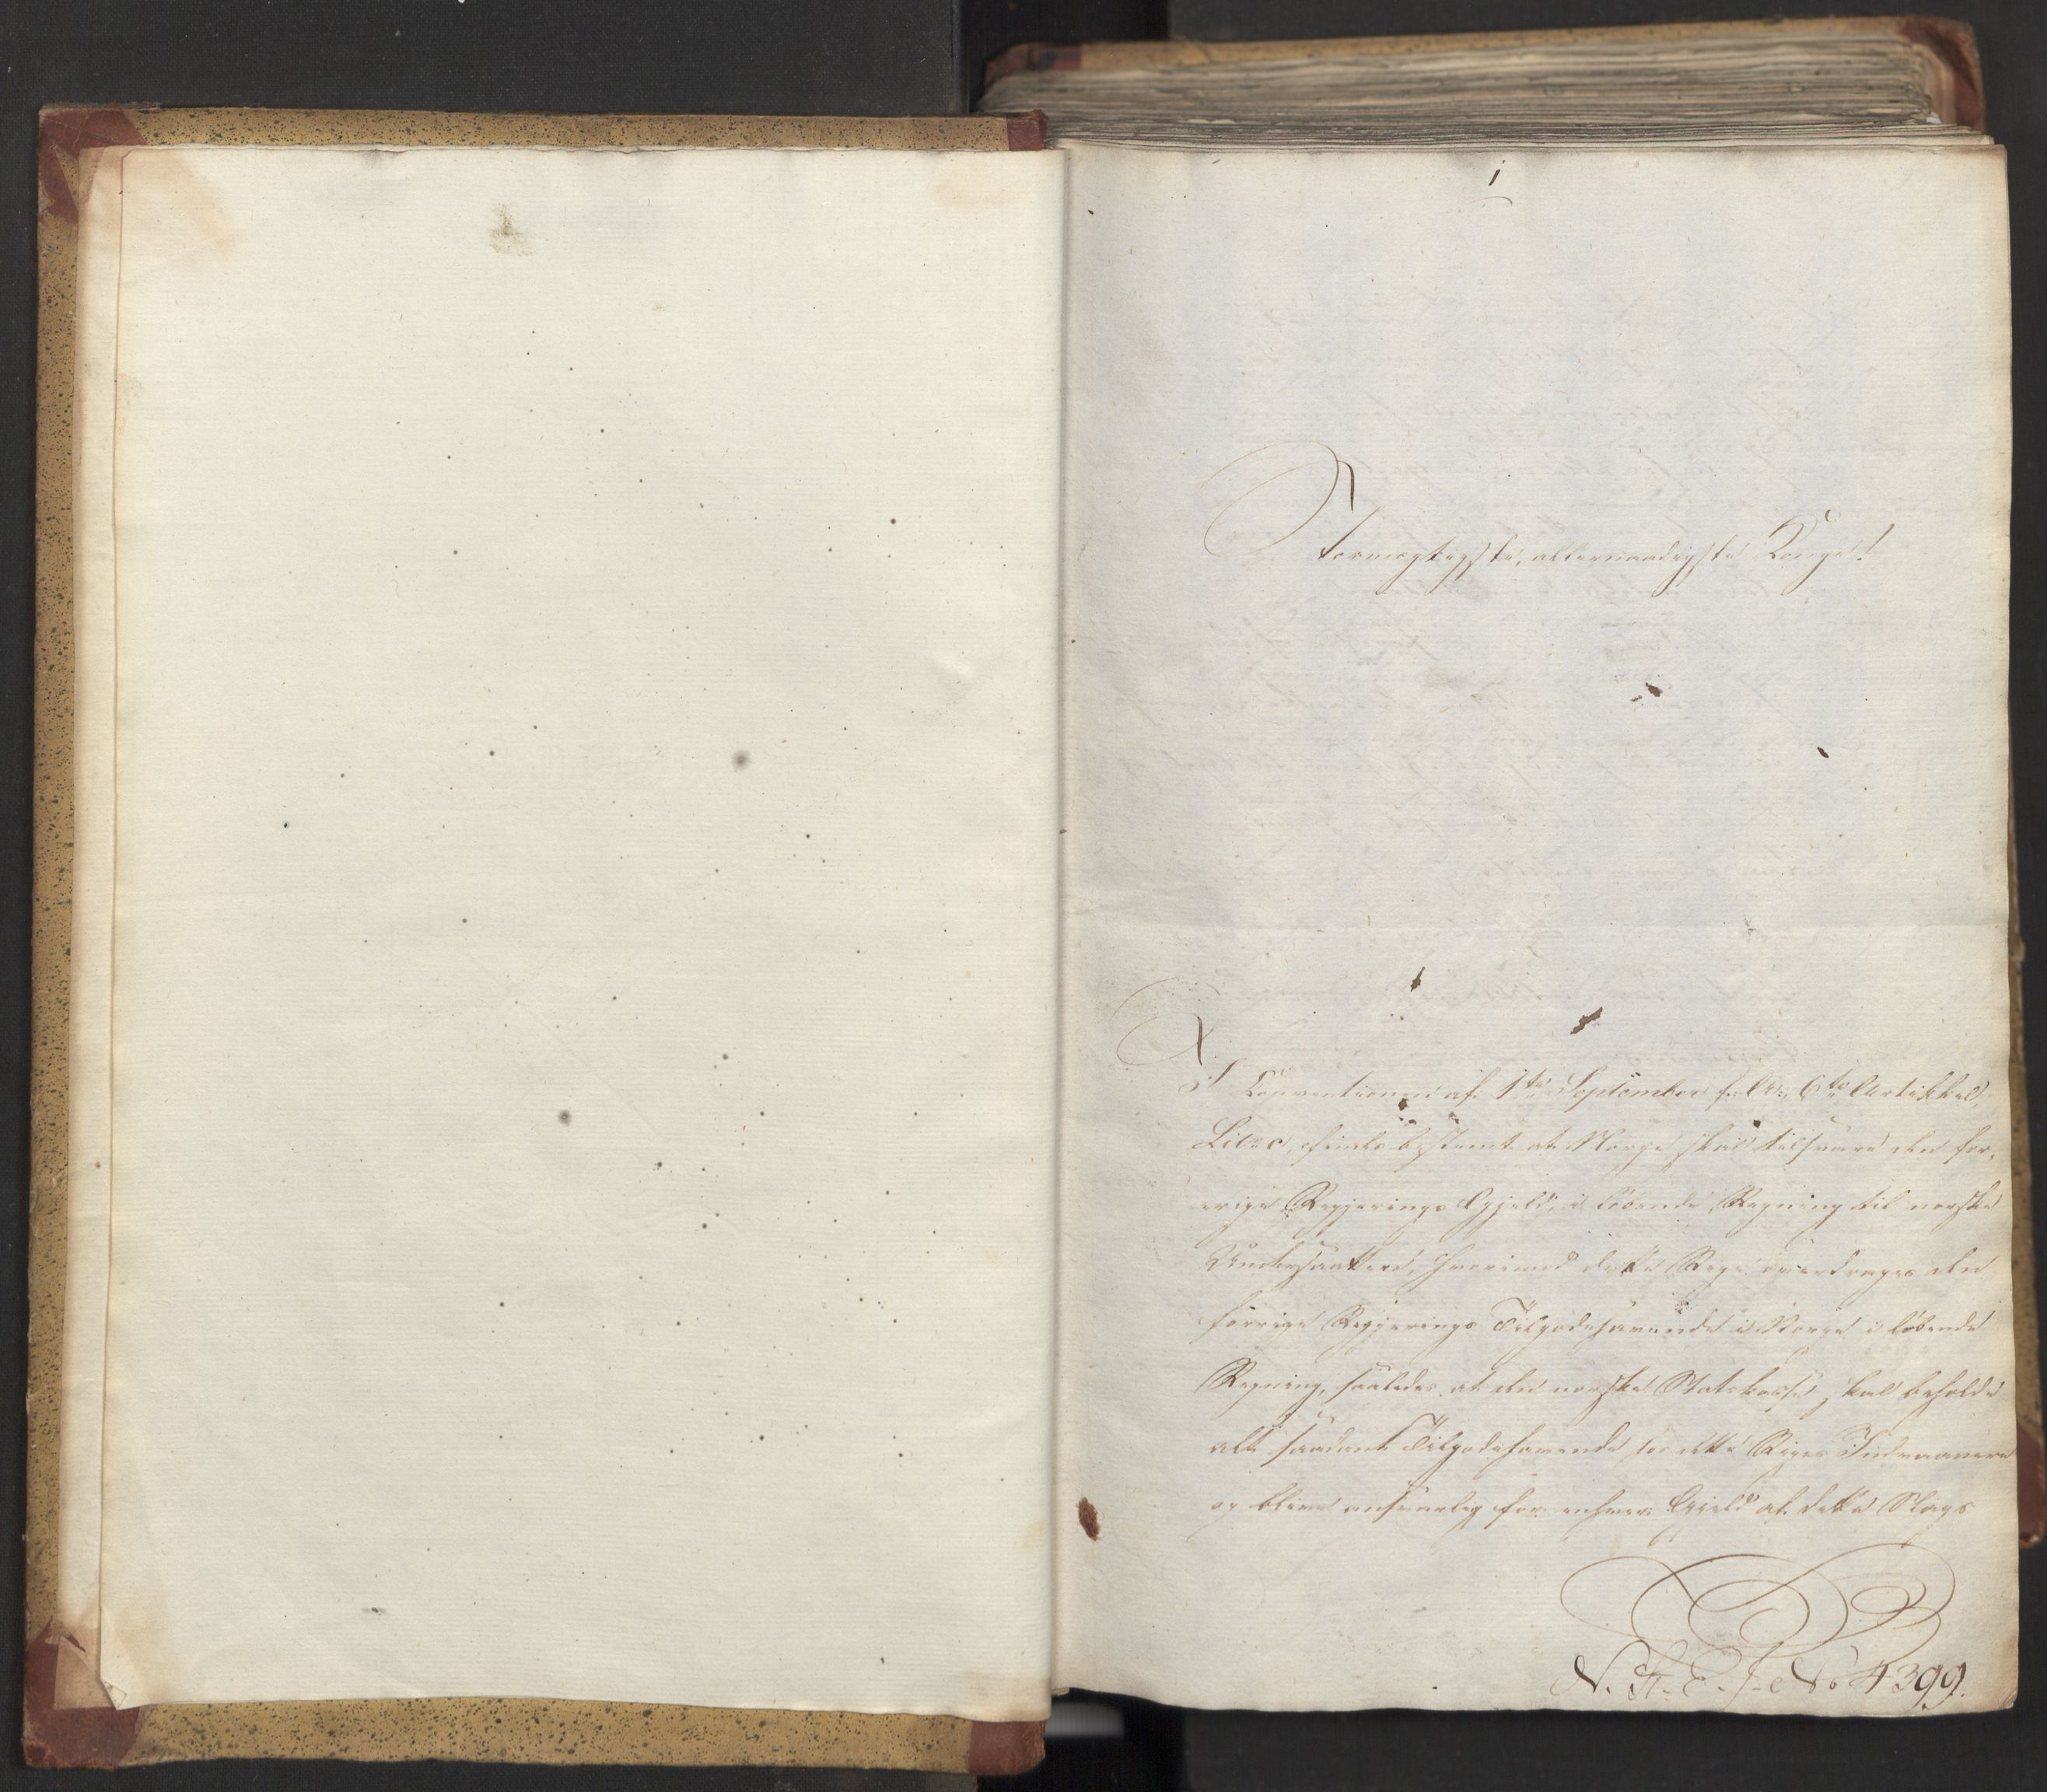 1
Stormægtigste, allernaadigste Konge!
I Conventionen af 1te September f: A: 6te Artikkel,
Litr. c, findes bestemt at Norge skal tilsvare den for-
rige Regjerings Gjeld i løbende Regning til norske
Undersaatter, hvorimod dette Rige overdrages den
forrige Regjerings Tilgodehavende i Norge i løbende
Regning, saaledes at den norske Statskasse skal beholde
alt saadant Tilgodehavende hos dette Riges Indvaanere
og blive ansvarlig for enhver Gjeld af dette Slags
No 4399.